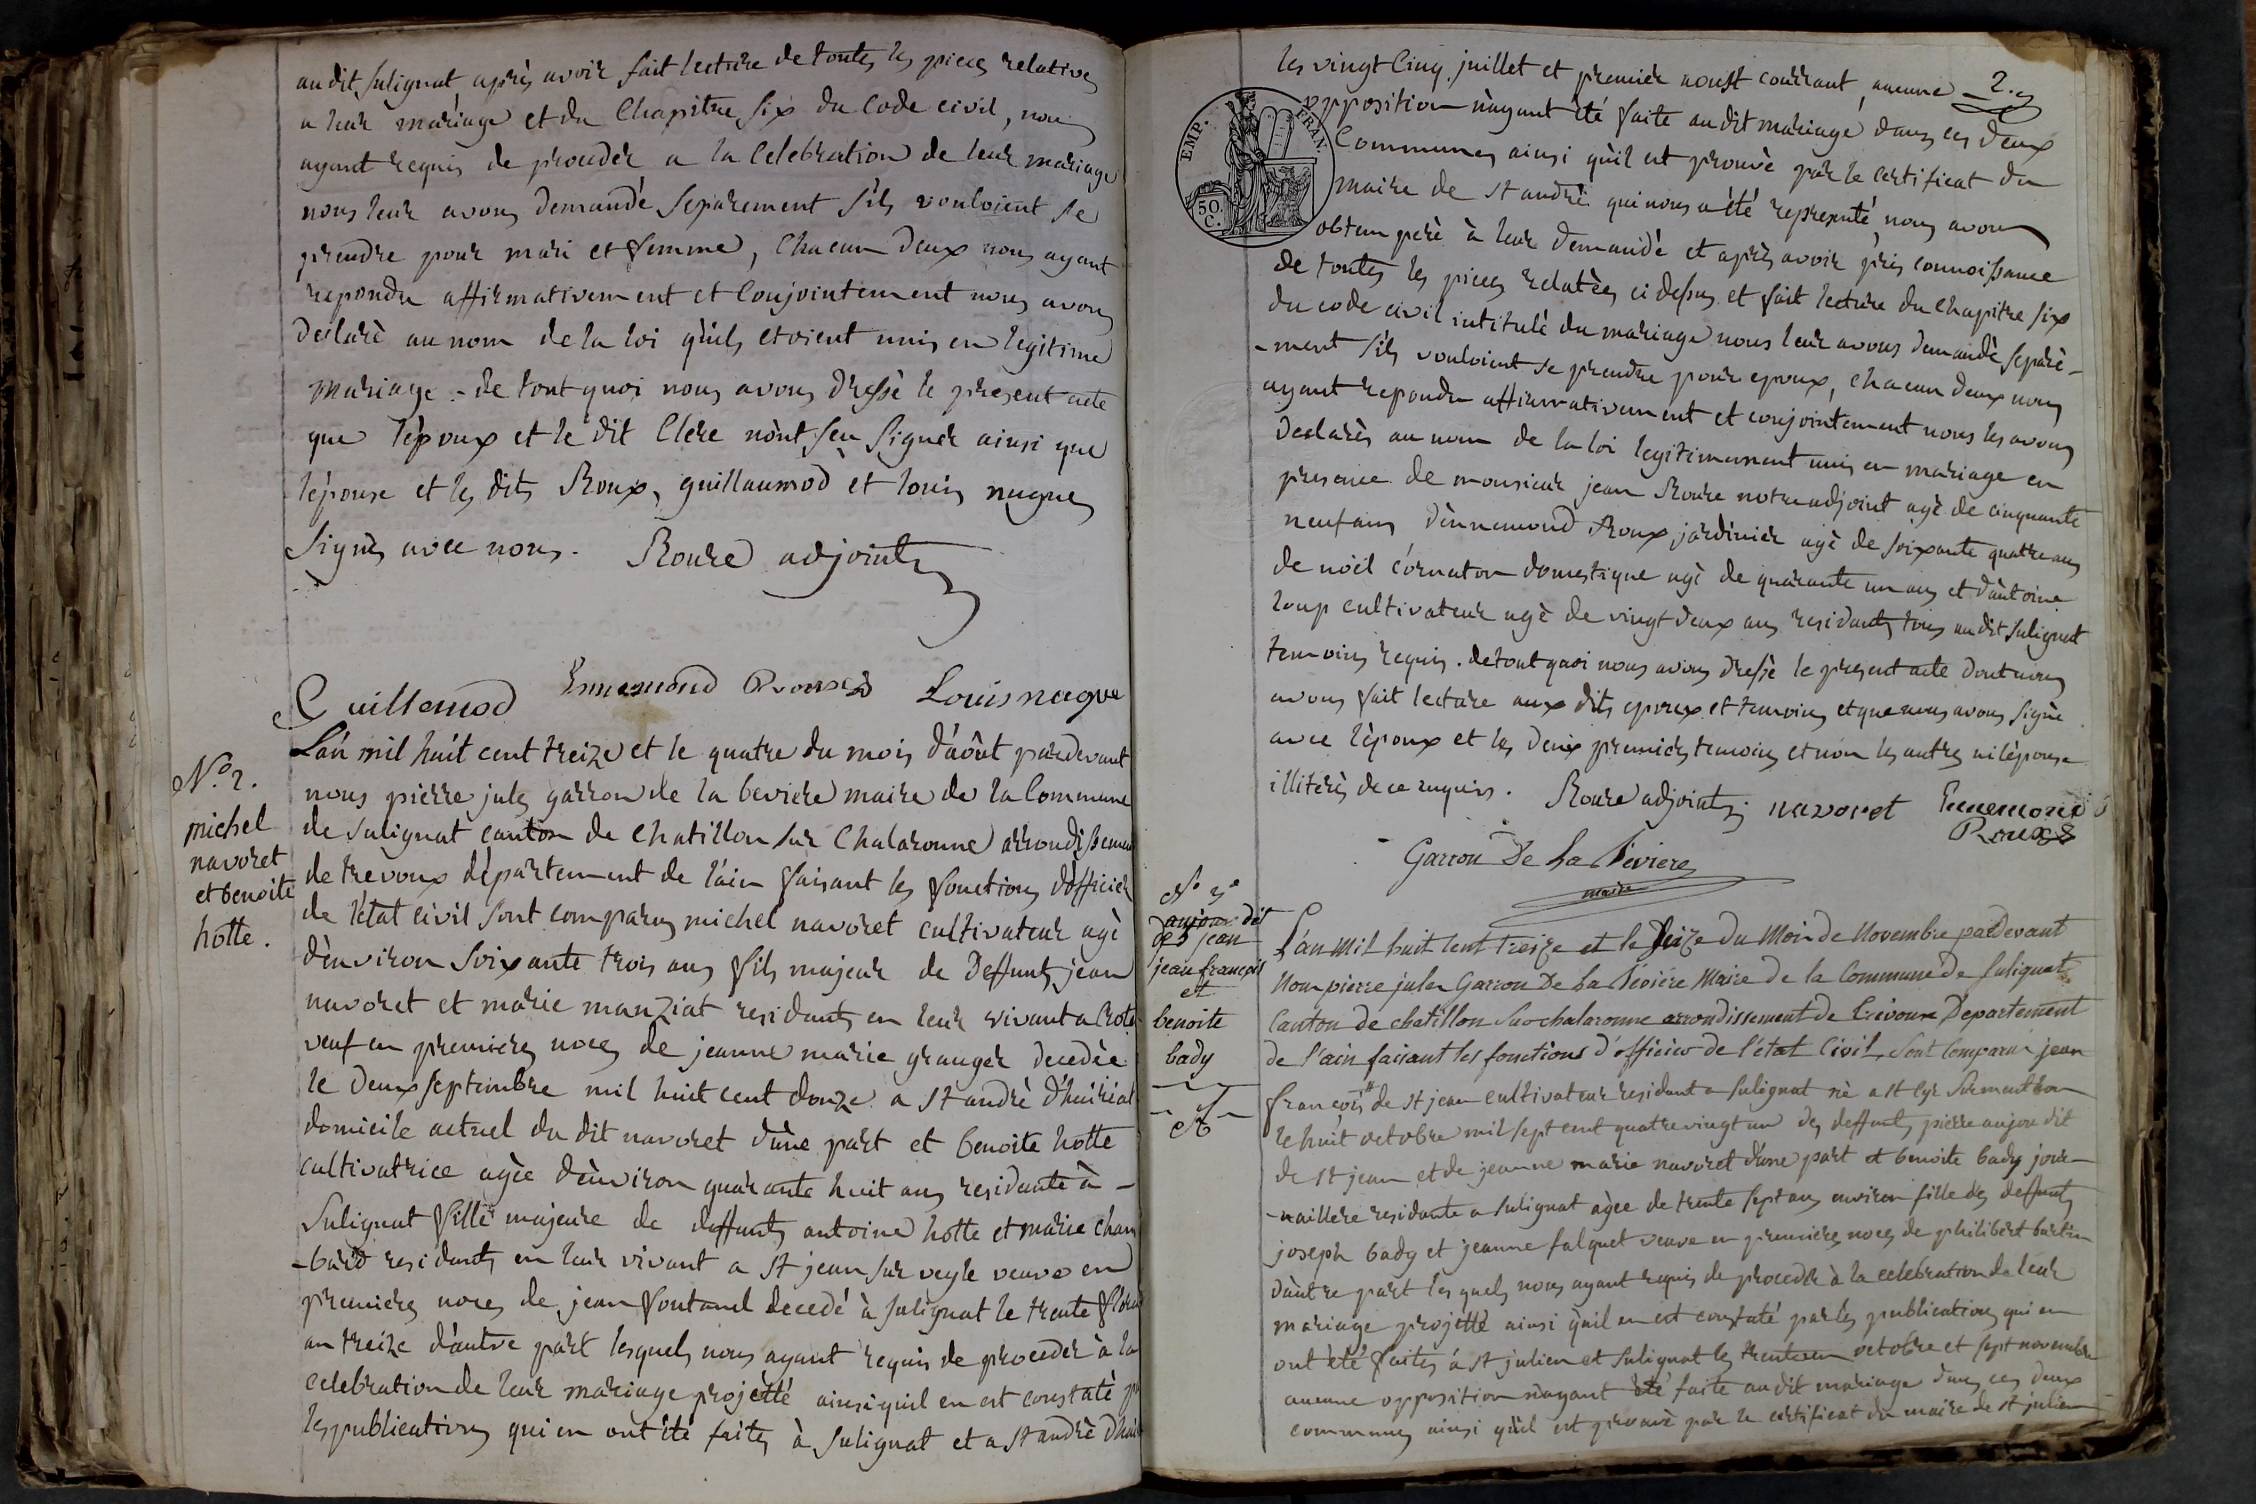 audit Sulignat après avoir fait lecture de toutes les pieces relatives
a leur mariage et du Chapitre Six du Code civil, nous
ayant requis de proceder a la Celebration de leur mariage
nous leur avons demandé Separement S'ils vouloient se
prendre pour mari et femme, Chacun deux nous ayant
repondu affirmativement et Conjointement nous avons
declaré au nom de la loi qu'ils etoient unis en legitime
mariage. - de tout quoi nous avons dressé le present acte
que l'époux et le dit Clere n'ont seu Signer ainsi que
l'épouse et les dits Roux, guillaumod et louis nugue
Signés avec nous. Roure adjoint
Guillemod Ennemond Roux Louis nugue
N.° 2.
michel
navoret
et benoite
hotte.
L'an mil huit cent treize et le quatre du mois d'août pardevant
nous pierre jules garron de la beviere maire de la Commune
de Sulignat canton de Chatillon sur Chalaronne arrondissement
de trevoux département de l'ain faisant les fonctions d'officier
de l'état civil sont comparus michel navoret cultivateur agé
d'environ Soixante trois ans fils majeur de deffunts jean
navoret et marie manziat residants en leur vivant a
veuf en premieres noces de jeanne marie granger decedée
le deux septembre mil huit cent douze a St andré d'huiriat
domicile actuel du dit navoret d'une part et benoite hotte
cultivatrice agée d'environ quarante huit ans residante à -
Sulignat fille majeure de deffunts antoine hotte et marie cham
-bard residants en leur vivant a St jean sur veyle veuve en
premieres noces de jean fontanel decedé à Sulignat le trente
an treize d'autre part lesquels nous ayant requis de proceder à la
celebration de leur mariage projetté ainsi quil en est constaté
les publications qui en ont été faites à Sulignat et a St andré
2.
les vingt Cinq juillet et premier aoust courrant, aucune
opposition n'ayant été faite audit mariage dans ces deux
Communes ainsi qu'il est prouvé par le certificat du
maire de St andré qui nous a été representé, nous avons
obtemperé à leur demande et après avoir pris connoissance
de toutes les pieces relatées ci dessus et fait lecture du chapitre six
du code civil intitulé du mariage nous leur avons demandé separé-
-ment s'ils vouloient se prendre pour epoux, chacun deux nous
ayant repondu affirmativement et conjointement nous les avons
declarés au nom de la loi legitimement unis en mariage en
presence de monsieur jean Roure notre adjoint agé de cinquante
neuf ans, d'ennemond Roux jardinier agé de soixante quatre ans
de noël cornaton domestique agé de quarante un ans et d'antoine
loup cultivateur agé de vingt deux ans residants tous audit Sulignat
temoins requis. de tout quoi nous avons dressé le present acte dont nous
avons fait lecture aux dits epoux et temoins et que nous avons signé
avec l'époux et les deux premiers temoins et non les autres ni l'épouse
illiterés de ce enquis. Roure adjoint navoret Ennemond
Roux
Garron De La Bévière
maire
EMP. FRAN.
50.
C.
N° 3°
anjou dit
de St jean
jean françois
et
benoite
bady
L'an Mil huit Cent Treize et le Seize du Mois de Novembre pardevant
Nous pierre jules Garron De La Bévière Maire de la Commune de Sulignat
Canton de chatillon Sur chalaronne arrondissement de Trévoux Departement
de l'ain faisant les fonctions d'officier de l'état Civil, Sont Comparus jean
françois de St jean cultivateur residant a Sulignat né a St Cyr Sur menthon
le huit octobre mil sept cent quatre vingt un des deffunts pierre anjou dit
de St jean et de jeanne marie navoret d'une part et benoite bady jour-
-naillere residante a Sulignat agée de trente sept ans environ fille des deffunts
joseph bady et jeanne falquet veuve en premieres noces de philibert bartin
d'autre part les quels nous ayant requis de proceder à la celebration de leur
mariage projetté ainsi qu'il en est constaté par les publications qui en
ont été faites à St julien et Sulignat les trente un octobre et sept novembre
aucune opposition n'ayant été faite audit mariage dans ces deux
communes ainsi qu'il est prouvé par le certificat du maire de St julien